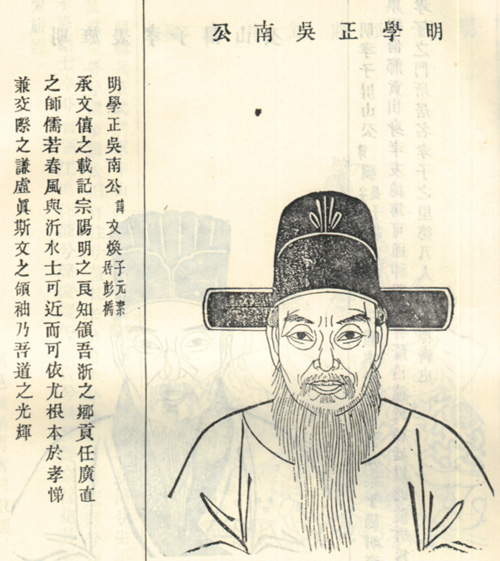 明學正吳南公
明學正吳南公諱文煥子元素居彭橋
承文僖之載記宗陽明之良知領吾浙之鄉貢任廣直
之師儒若春風與沂水士可近而可依尤根本於孝悌
兼交際之謙虛眞斯文之領袖乃吾道之光輝